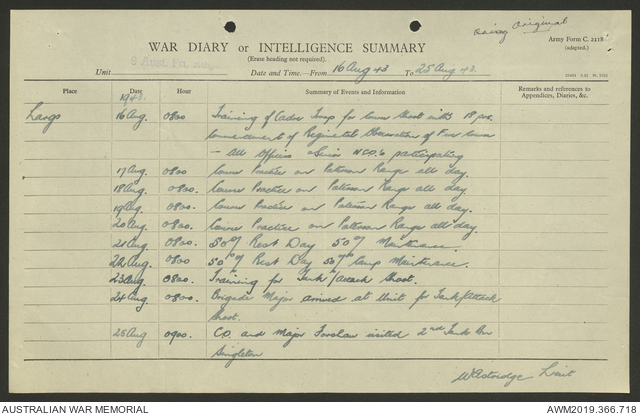 Original
Army Form C. 2118
(adapted.)
WAR DIARY or INTELLIGENCE SUMMARY
(Erase heading not required).
Unit 8 Aust. Fd.
Date and Time.—From 16 Aug 43 To 25 Aug 43.
Place Date Hour Summary of Events and Information Remarks and references to Appendices, Diaries, &c.
1943.
Largs 16 Aug 0800 Training of Cadre Troop for Course Shoot with 18 prs.
commencement of Regimental Observation of Fire Course
– All Officers & Senior N.C.O.s participating
17 Aug. 0800 Course Practice on Paterson Range all day.
18 Aug. 0800. Course Practice on Paterson Range all day
19 Aug. 0800. Course Practice on Paterson Range all day.
20 Aug. 0800. Course Practice on Paterson Range all day.
21 Aug. 0800. 50% Rest Day 50% Maintenance.
22 Aug. 0800 50% Rest Day 50% Camp Maintenance.
23 Aug. 0800. Training for Tank/Attack Shoot.
24 Aug 0800. Brigade Major arrived at Unit for Tank/Attack
Shoot.
25 Aug 0900. C.O. and Major visited 2nd Tank Bn
Singleton
Lieut
AUSTRALIAN WAR MEMORIAL
AWM2019.366.718